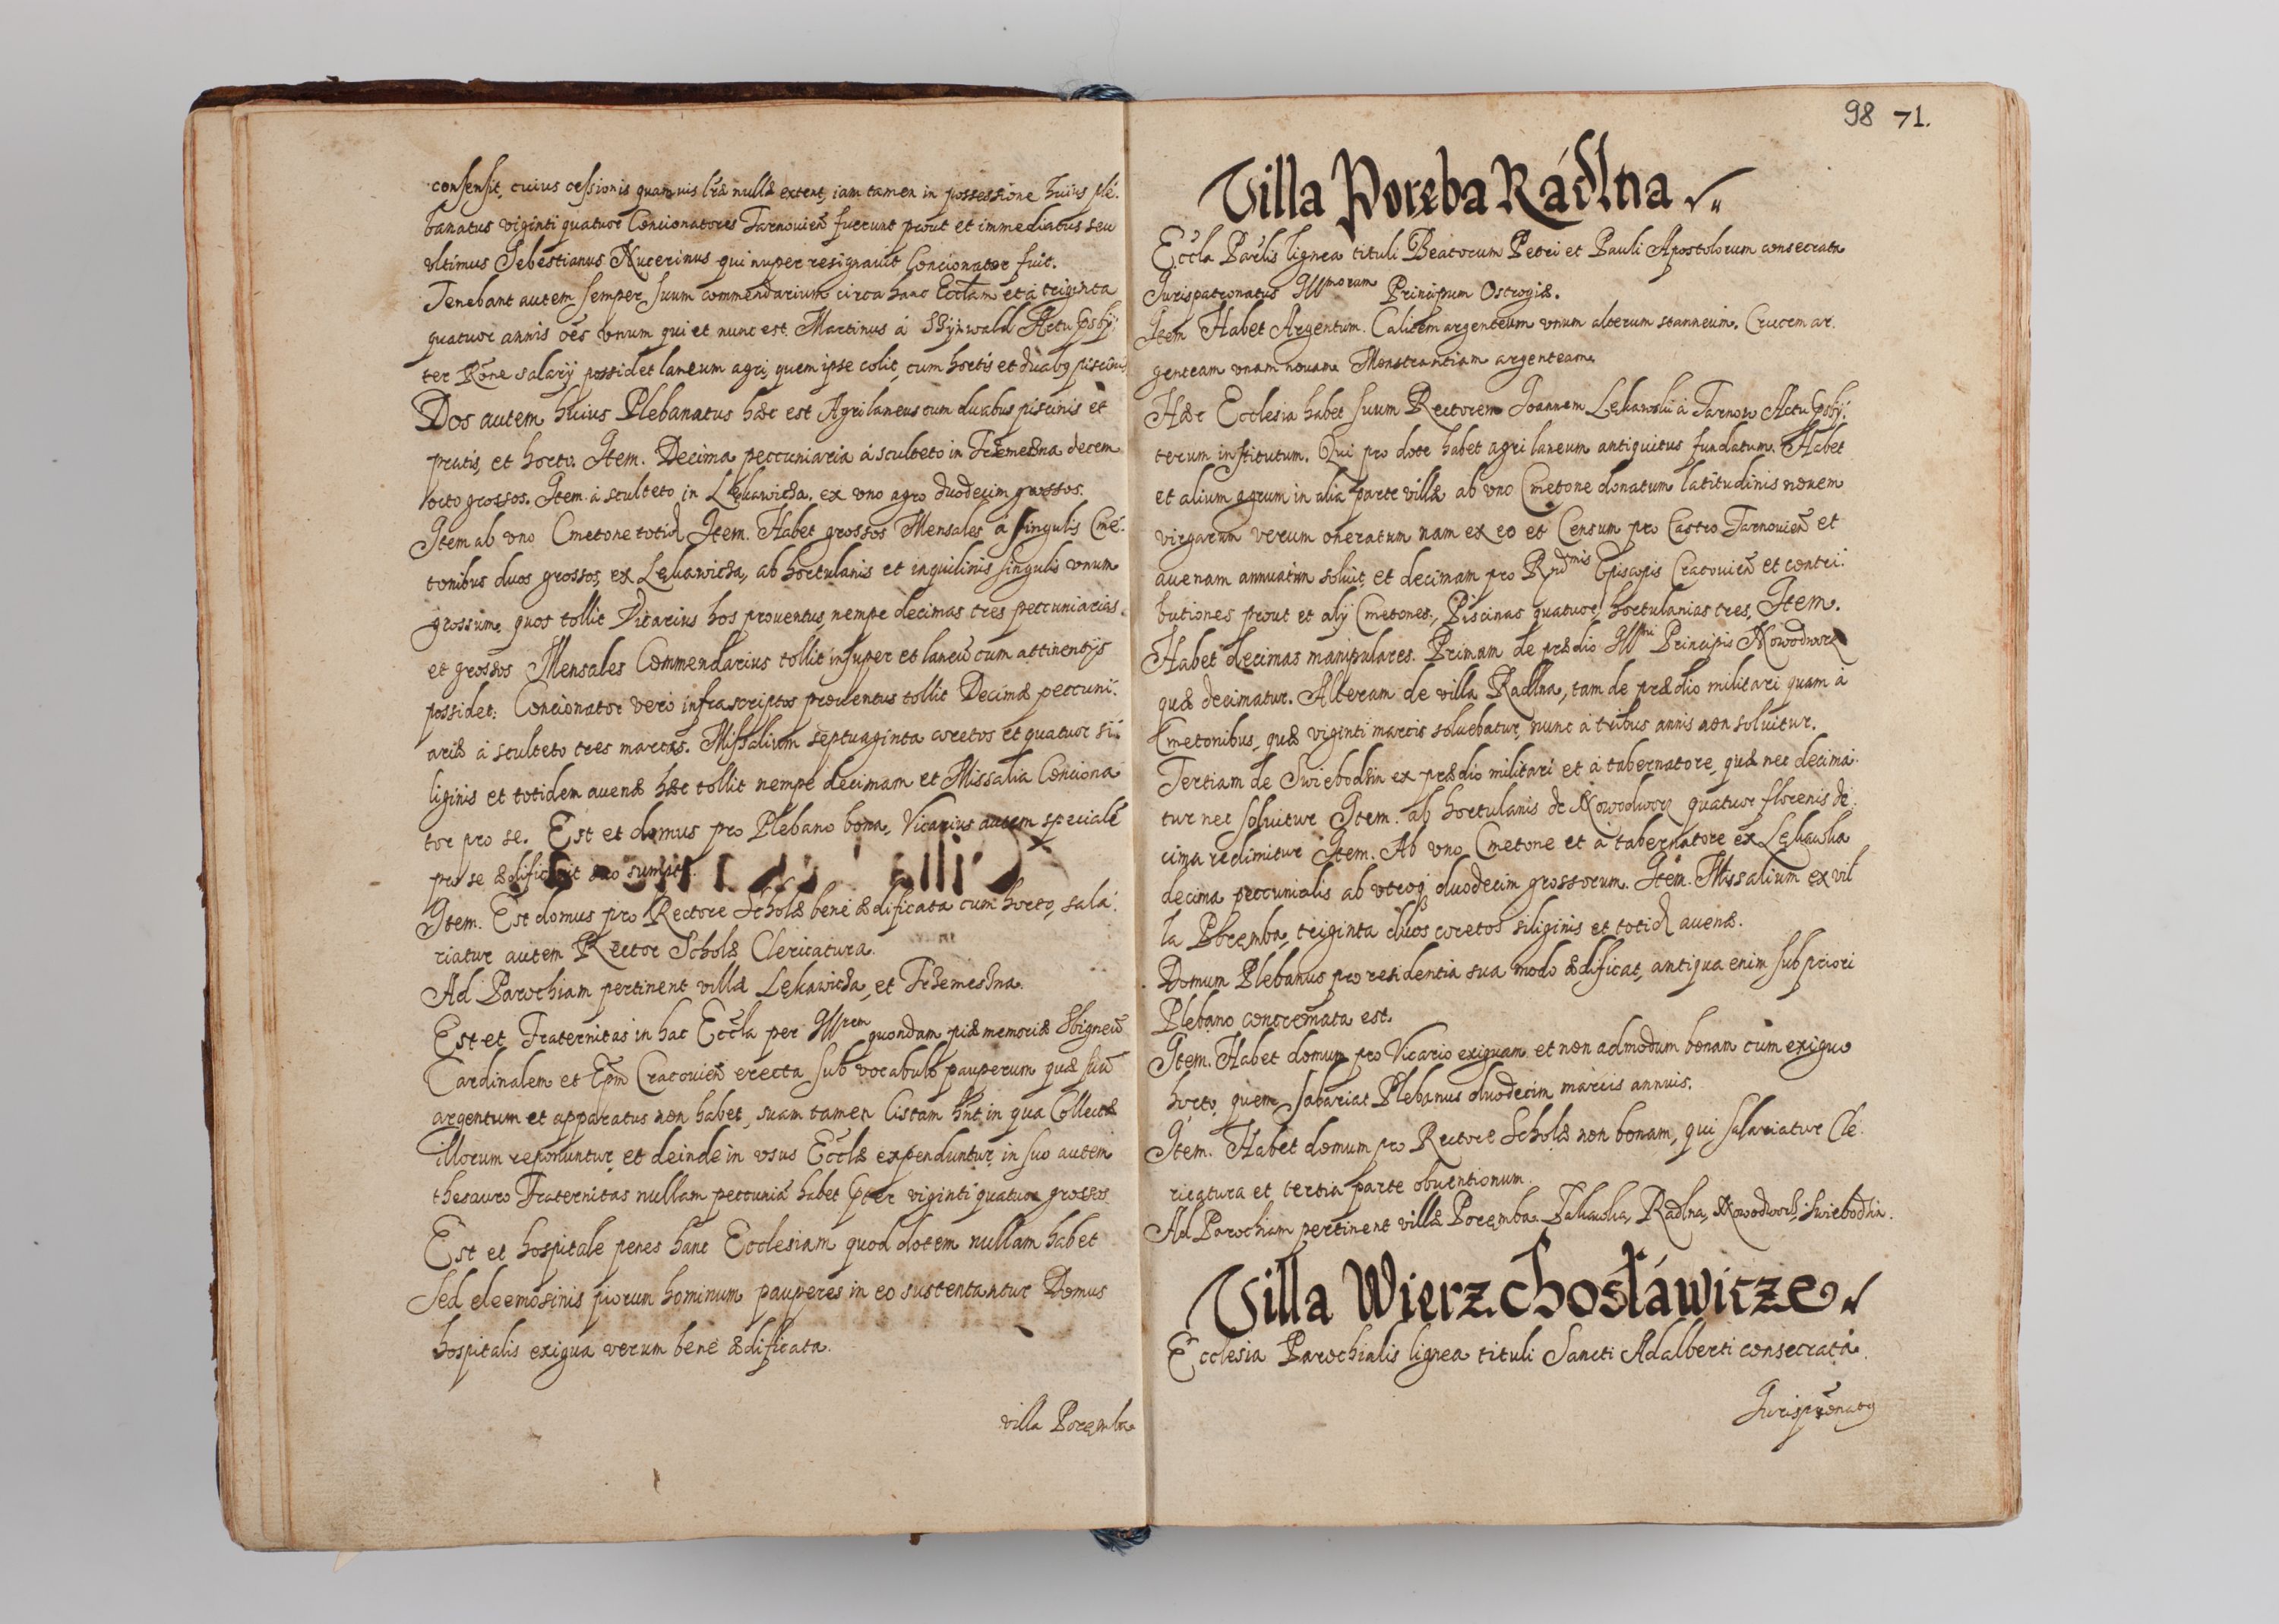 consensit, cuius cessionis quamuis lr̃æ nullæ extent, iam tamen in possessione huius ple-
banatus viginti quatuor Concionatores Tarnouien̄ fuerunt prout et immediatus seu
vltimus Sebestianus Nucerinus qui nuper resignauit Concionator fuit.
Tenebant autem semper, suum commendarium circa hanc Eccl̃am et à triginta
quatuor annis oẽs vnum qui et nunc est Martinus á Szÿnwald Actu Pr̃sbÿ:
ter Rõne salarÿ possidet laneum agri, quem ipse colit, cum hortis et duabꝫ piscinis
Dos autem huius Plebanatus hæc est Agri laneus cum duabus piscinis et
pratis, et horto. Item. Decima peccuniaria á sculteto in Trzemezna decem
octo grossos. Item á sculteto in Lękawicza, ex vno agro duodecim grossos.
Item ab vno Cmetone totid̃ Item. Habet grossos Mensales á singulis Cme-
tonibus duos grossos, ex Lękawicza, ab hortulanis et inquilinis singulis vnum
grossum, quos tollit Vicarius hos prouentus, nempe decimas tres peccuniarias
et grossos Mensales Commendarius tollit insuper et laneũ cum attinentÿs
possidet: Concionator vero infrascriptos prouentus tollit Decimæ peccuni:
ariæ á sculteto tres marcas. Missalium septuaginta coretos et quatuor si:
liginis et totidem auenæ hæc tollit nempe decimam et Missalia Conciona
tor pro se. Est et domus pro Plebano bona, Vicarius autem speciale
pro se ædificauit suo sumptu.
Item. Est domus pro Rectore Scholæ bene ædificata cum horto, sala:
riatur autem Rector Scholæ Clericatura.
Ad Parochiam pertinent villæ Lękawicza, et Trzemeszna.
Est et Fraternitas in hac Eccl̃a per Illrem quondam piæ memoriæ Sbigneũ
Cardinalem et Ep̃m Cracouien̄ erecta sub vocabulo pauperum quæ suũ
argentum et apparatus non habet, suam tamen Cistam hñt in qua Collectæ
illorum reponuntur, et deinde in vsus Eccl̃æ expenduntur, in suo autem
thesauro Fraternitas nullam peccuniã habet p̃ter viginti quatuor grossos
Est et hospitale penes hanc Ecclesiam quod dotem nullam habet
Sed eleemosinis piorum hominum pauperes in eo sustentantur Domus
hospitalis exigua verum bene ædificata.
villa Poręmba
98 71.
Villa Poręba Rádlna
Eccl̃a Par̃lis lignea tituli Beatorum Petri et Pauli Apostolorum consecrata
Jurispatronatus Illmorum Principum Ostrogiæ.
Item Habet Argentum. Calicem argenteum vnum alterum stanneum. Crucem ar-
genteam vnam nouam. Monstrantiam argenteam.
Hæc Ecclesia habet suum Rectorem Joannem Lękawski á Tarnow Actu Pr̃sbÿ:
terum institutum. Qui pro dote habet agri laneum antiquitus fundatum. Habet
et alium agrum in alia parte villæ ab vno Cmetone donatum latitudinis nouem
virgarum verum oneratum nam ex eo et Censum pro Castro Tarnouien̄ et
auenam annuatim soluit, et decimam pro Rndmis Episcopis Cracouien̄ et contri:
butiones prout et alÿ Cmetones, Piscinas quatuor, hortulanias tres, Item.
Habet decimas manipulares. Primam de prædio Illmi Principis Nowodworz
quæ decimatur. Alteram de villa Radlna, tam de prædio militari quam á
Cmetonibus, quæ viginti marcis soluebatur, nunc á tribus annis non soluitur.
Tertiam de Swiebodzin ex prædio militari et á tabernatore, quæ nec decima-
tur nec soluitur Item. ab hortulanis de Nowodworz quatuor florenis de:
cima redimitur Item. Ab vno Cmetone et á tabernatore ex Lękawka
decima peccunialis ab vtroqꝫ duodecim grossorum. Item. Missalium ex vil
la Poręmba, triginta duos coretos siliginis et totid̃ auenæ.
Domum Plebanus pro residentia sua modo ædificat, antiqua enim sub priori
Plebano concremata est.
Item. Habet domum pro Vicario exiguam et non admodum bonam cum exiguo
horto, quem salariat Plebanus duodecim marcis annuis.
Item. Habet domum pro Rectore Scholæ non bonam, qui salariatur Cle-
ricatura et tertia parte obuentionum.
Ad Parochiam pertinent villæ Poręmba Łękawka, Radlna, Nowodworz, Swiebodzin.
Villa Wierzchosłáwicze
Ecclesia Parochialis lignea tituli Sancti Adalberti consecrata.
Jurisp̃ronatꝫ